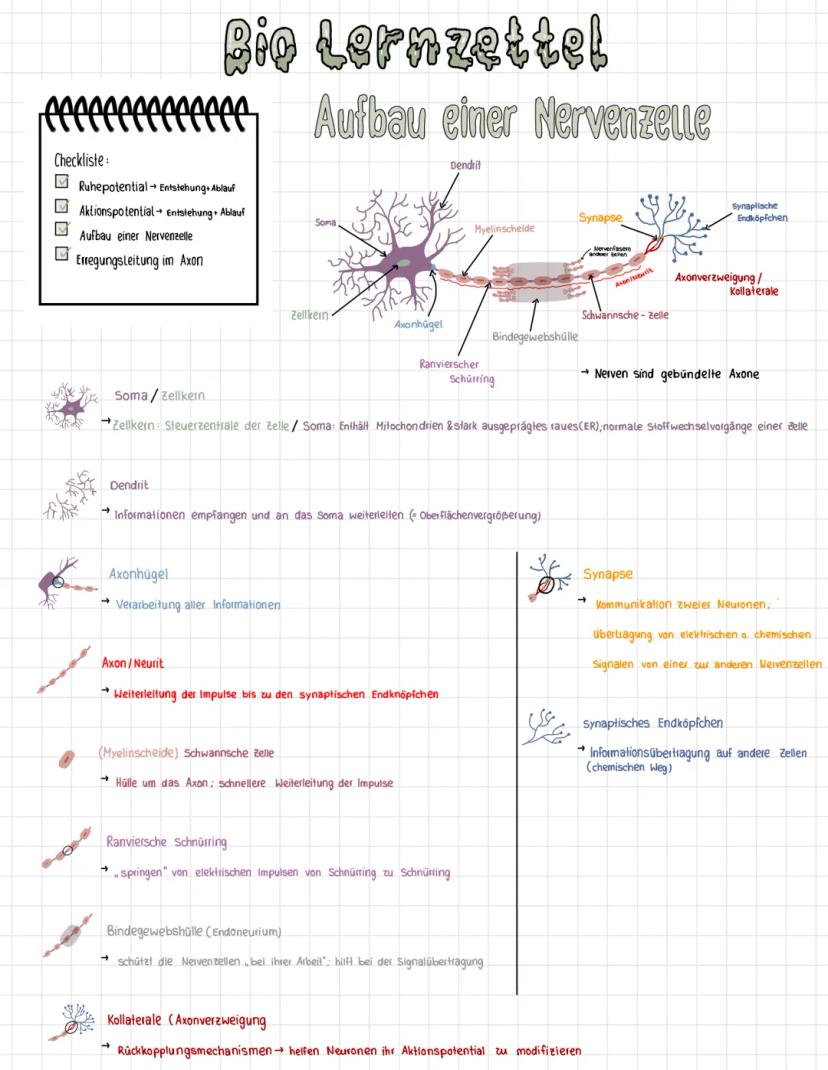 Bio Lernzettel
Aufbau einer Nervenzelle
Checkliste:
Ruhepotential → Entstehung + Ablauf
Aktionspotential → Entstehung + Ablauf
Aufbau einer Nervenzelle
Erregungsleitung im Axon
Dendrit
Soma
Myelinscheide
Synapse
Synaptische
Endköpfchen
Nervenfasern
anderer Zellen
Axon/Neurit
Axonverzweigung/
Kollaterale
Zellkern
Axonhügel
Schwannsche-Zelle
Bindegewebshülle
Ranvierscher
Schürring
→ Nerven sind gebündelte Axone
Soma / Zellkern
→ Zellkern: Steuerzentrale der Zelle / Soma: Enthält Mitochondrien & stark ausgeprägtes raues (ER); normale Stoffwechselvorgänge einer Zelle
Dendrit
→ Informationen empfangen und an das Soma weiterleiten (= Oberflächenvergrößerung)
Axonhügel
→ Verarbeitung aller Informationen
Axon/Neurit
→ Weiterleitung der Impulse bis zu den synaptischen Endknöpfchen
(Myelinscheide) Schwannsche Zelle
→ Hülle um das Axon; schnellere Weiterleitung der Impulse
Ranviersche Schnürring
→ „springen" von elektrischen Impulsen von Schnürring zu Schnürring
Bindegewebshülle (Endoneurium)
→ schützt die Nervenzellen „bei ihrer Arbeit"; hilft bei der Signalübertragung
Kollaterale (Axonverzweigung
→ Rückkopplungsmechanismen → helfen Neuronen ihr Aktionspotential zu modifizieren
Synapse
→ Kommunikation zweier Neuronen;
Übertragung von elektrischen o. chemischen
Signalen von einer zur anderen Nervenzellen
Synaptisches Endköpfchen
→ Informationsübertragung auf andere Zellen
(chemischen Weg)